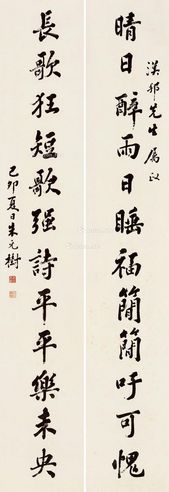 漢邨先生属正
晴日醉雨日睡福簡簡吁可愧
長歌狂短歌强詩平平樂未央
己卯夏日朱元樹